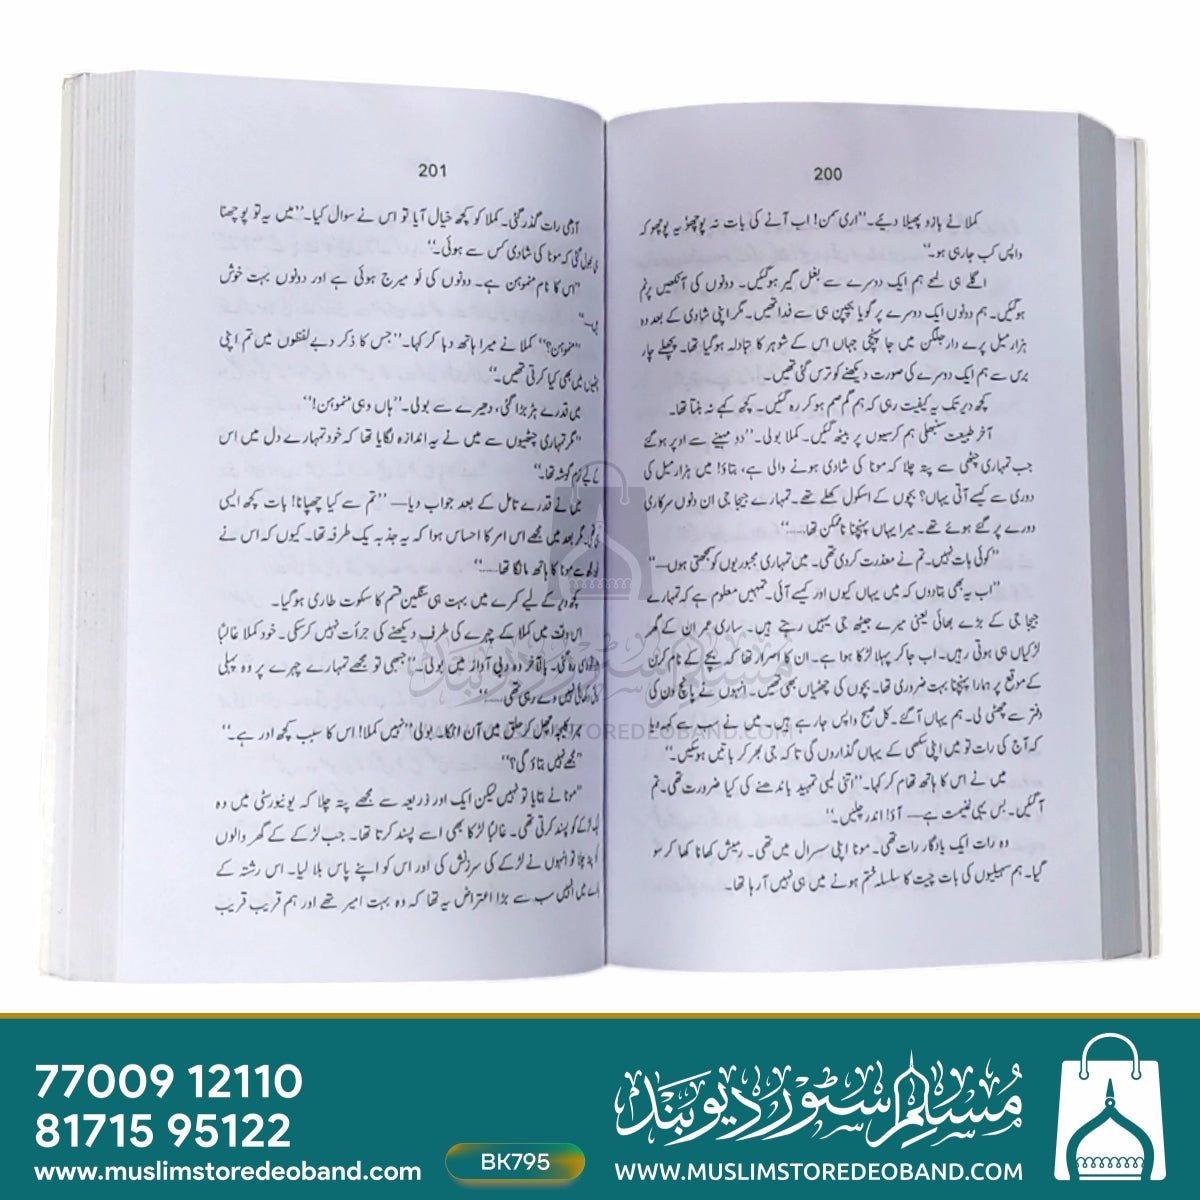 200
کملا نے بازو پھیلا دیئے۔ ”اری سمن! اب آنے کی بات نہ پوچھو یہ پوچھو کہ
واپس کب جا رہی ہو۔“
اگلے ہی لمحے ہم ایک دوسرے سے بغل گیر ہو گئیں۔ دونوں کی آنکھیں پرنم
ہو گئیں۔ ہم دونوں ایک دوسرے پر گویا بچپن ہی سے فدا تھیں۔ مگر اپنی شادی کے بعد وہ
ہزار میل پرے دارجلنگ میں جا پہنچی جہاں اس کے شوہر کا تبادلہ ہو گیا تھا۔ پچھلے چار
برس سے ہم ایک دوسرے کی صورت دیکھنے کو ترس گئی تھیں۔
کچھ دیر تک یہ کیفیت رہی کہ ہم گم صم ہو کر رہ گئیں۔ کچھ کہے نہ بنتا تھا۔
آخر طبیعت سنبھلی ہم کرسیوں پر بیٹھ گئیں۔ کملا بولی۔ ”دو مہینے سے اوپر ہو گئے
جب تمہاری چٹھی سے پتہ چلا کہ مونا کی شادی ہونے والی ہے، بتاؤ! میں ہزار میل کی
دوری سے کیسے آتی یہاں؟ بچوں کے اسکول کھلے تھے۔ تمہارے جیجا جی ان دنوں سرکاری
دورے پر گئے ہوئے تھے۔ میرا یہاں پہنچنا ناممکن تھا......“
”کوئی بات نہیں۔ تم نے معذرت کر دی تھی۔ میں تمہاری مجبوریوں کو سمجھتی ہوں—“
”اب یہ بھی بتا دوں کہ میں یہاں کیوں اور کیسے آئی۔ تمہیں معلوم ہے کہ تمہارے
جیجا جی کے بڑے بھائی یعنی میرے جیٹھ جی یہیں رہتے ہیں۔ ساری عمر ان کے گھر
لڑکیاں ہی ہوتی رہیں۔ اب جا کر پہلا لڑکا ہوا ہے۔ ان کا اصرار تھا کہ بچے کے نام کرن
کے موقع پر ہمارا پہنچنا بہت ضروری تھا۔ بچوں کی چھٹیاں بھی تھیں۔ انہوں نے پانچ دن کی
دفتر سے چھٹی لی۔ ہم یہاں آ گئے۔ کل صبح واپس جا رہے ہیں۔ میں نے سب سے کہہ دیا
کہ آج کی رات تو میں اپنی سکھی کے یہاں گذاروں گی تا کہ جی بھر کر باتیں ہو سکیں۔“
میں نے اس کا ہاتھ تھام کر کہا۔ ”اتنی لمبی تمہید باندھنے کی کیا ضرورت تھی۔ تم
آ گئیں۔ بس یہی غنیمت ہے— آؤ! اندر چلیں۔“
وہ رات ایک یادگار رات تھی۔ مونا اپنی سسرال میں تھی۔ رمیش کھانا کھا کر سو
گیا۔ ہم سہیلیوں کی بات چیت کا سلسلہ ختم ہونے میں ہی نہیں آ رہا تھا۔
201
آدھی رات گذر گئی۔ کملا کو کچھ خیال آیا تو اس نے سوال کیا۔ ”میں یہ تو پوچھنا
بھول گئی کہ مونا کی شادی کس سے ہوئی۔“
”اس کا نام منموہن ہے۔ دونوں کی لو میرج ہوئی ہے اور دونوں بہت خوش
ہیں—“
”منموہن؟“ کملا نے میرا ہاتھ دبا کر کہا۔ ”جس کا ذکر دبے لفظوں میں تم اپنی
چٹھیوں میں بھی کیا کرتی تھیں۔“
میں قدرے ہڑبڑا گئی، دھیرے سے بولی۔ ”ہاں وہی منموہن!“
”مگر تمہاری چٹھیوں سے میں نے یہ اندازہ لگایا تھا کہ خود تمہارے دل میں اس
کے لیے نرم گوشہ تھا۔“
میں نے قدرے تامل کے بعد جواب دیا— ”تم سے کیا چھپانا! بات کچھ ایسی
ہی تھی۔ مگر بعد میں مجھے اس امر کا احساس ہوا کہ یہ جذبہ یک طرفہ تھا۔ کیوں کہ اس نے
خود مجھ سے مونا کا ہاتھ مانگا تھا......“
کچھ دیر کے لیے کمرے میں بہت ہی سنگین قسم کا سکوت طاری ہو گیا۔
اس وقت میں کملا کے چہرے کی طرف دیکھنے کی جرأت نہیں کر سکی۔ خود کملا غالبًا
رہ گئی۔ بالآخر وہ دبی آواز میں بولی۔ ”جبھی تو مجھے تمہارے چہرے پر وہ پہلی
دکھائی نہیں دے رہی تھی......“
میرا کلیجہ اچھل کر حلق میں آن اٹکا۔ بولی ”نہیں کملا! اس کا سبب کچھ اور ہے۔“
”مجھے نہیں بتاؤ گی؟“
”مونا نے بتایا تو نہیں لیکن ایک اور ذریعہ سے مجھے پتہ چلا کہ یونیورسٹی میں وہ
ایک لڑکے کو پسند کرتی تھی۔ غالبًا لڑکا بھی اسے پسند کرتا تھا۔ جب لڑکے کے گھر والوں
کو پتہ چلا تو انہوں نے لڑکے کی سرزنش کی اور اس کو اپنے پاس بلا لیا۔ اس رشتہ کے
بارے میں انہیں سب سے بڑا اعتراض یہ تھا کہ وہ بہت امیر تھے اور ہم قریب قریب
مسلم سٹور دیوبند
STOREDEOBAND.COM
77009 12110
81715 95122
www.muslimstoredeoband.com
BK795
مسلم سٹور دیوبند
WWW.MUSLIMSTOREDEOBAND.COM